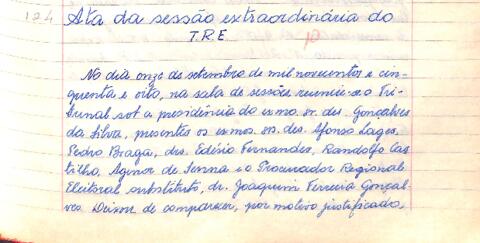 194 Ata da sessão extraordinária do
T.R.E
No dia onze de setembro de mil novecentos e cin-
quenta e oito, na sala de sessões reuniu-se o Tri-
bunal sob a presidência do exmo. sr. des. Gonçalves
da Silva, presentes os exmos. srs. des. Afonso Lages,
Pedro Braga, drs. Edésio Fernandes, Randolfo Cas
tilho, Agenor de Senna e o Procurador Regional
Eleitoral substituto, dr. Joaquim Ferreia Gonçal-
ves Deixou de comparecer, por motivo justificado,